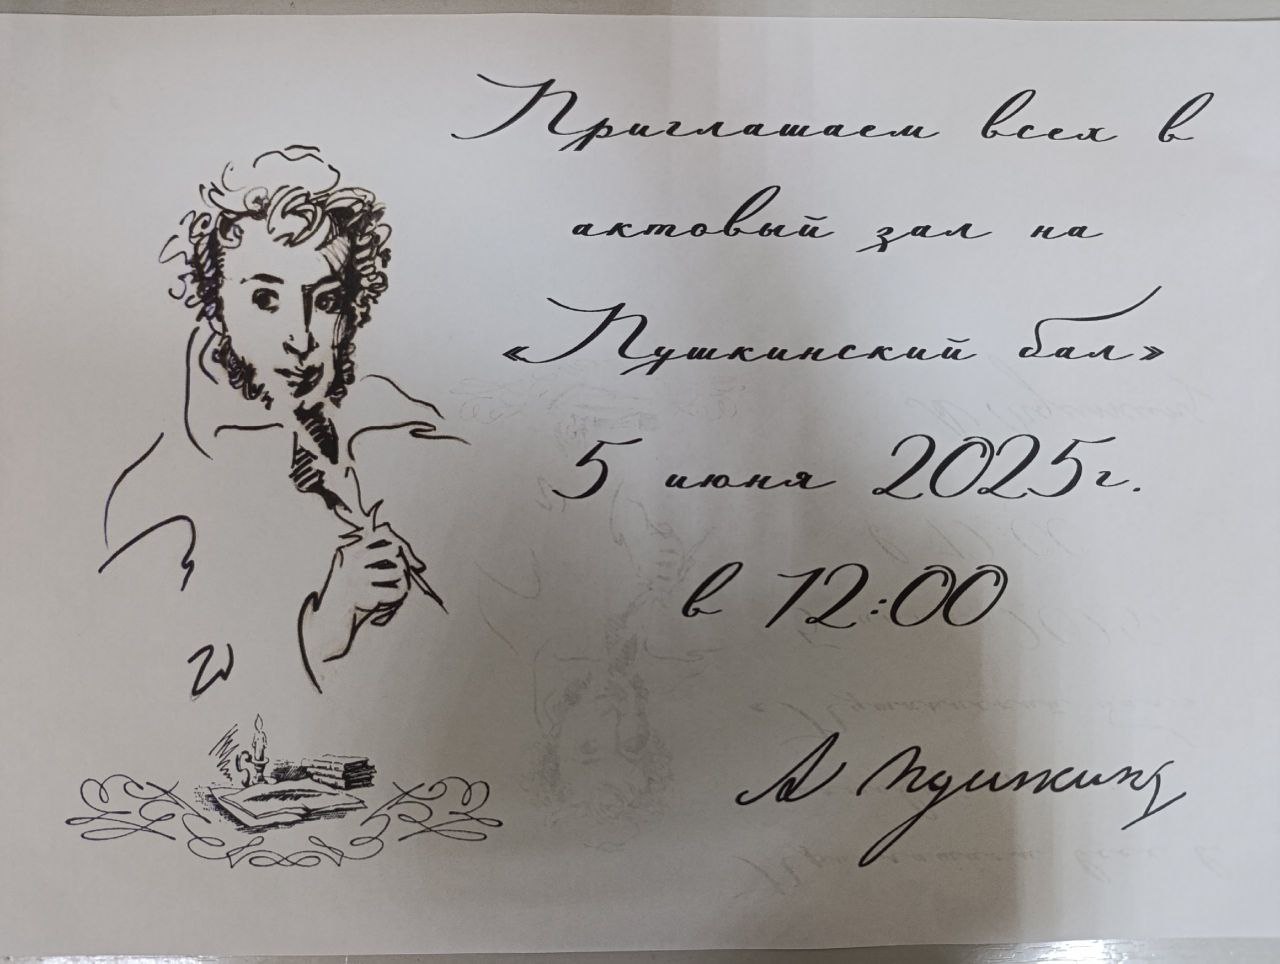 Приглашаем всех в
актовый зал на
«Пушкинский бал»
5 июня 2025г.
в 12:00
А Пушкинъ